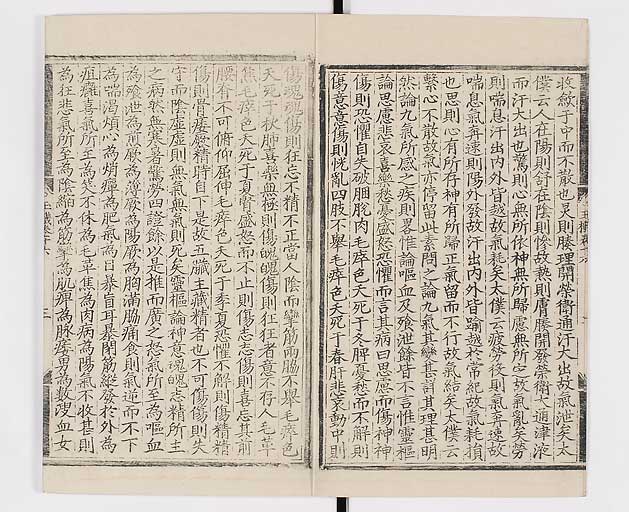 收斂于中而不散也炅則腠理開榮衛通汗大出故氣泄矣太
僕云人在陽則舒在陰則慘故熱則膚腠開發榮衛大通津液
而汗大出也驚則心無所依神無所歸慮無所定故氣亂矣勞
則喘息汗出內外皆越故氣耗矣太僕云疲勞役則氣奔速故
喘息氣奔速則陽外發故汗出內外皆踰越於常紀故氣耗損
也思則心有所存神有所歸正氣留而不行故氣結矣太僕云
繫心不散故氣亦停留此素問之論九氣其變甚詳其理甚明
然論九氣所感之疾則畧惟論嘔血及飧泄餘皆不言惟靈樞
論思慮悲哀喜樂愁憂盛怒恐懼而言其病曰思慮而傷神神
傷則恐懼自失破䐃脫肉毛瘁色夭死于冬脾憂愁而不解則
傷意意傷則悗亂四肢不舉毛瘁色夭死于春肝悲哀動中則
傷魂魂傷則狂忘不精不正當人陰而攣筋兩脇不舉毛瘁色
夭死于秋肺喜樂無極則傷魄魄傷則狂狂者意不存人毛革
焦毛瘁色夭死于夏腎盛怒而不止則傷志志傷則喜忘其前
腰脊不可俯仰屈伸毛瘁色夭死于季夏恐懼不解則傷精精
傷則骨痿厥精時自下是故五臟主藏精者也不可傷傷則失
守而陰虛虛則無氣無氣則死矣靈樞論神意魂魄志精所主
之病然無寒暑驚勞四證餘以是推而廣之怒氣所至為嘔血
為飧泄為煎厥為薄厥為陽厥為胸滿脇痛食則氣逆而不下
為喘渴煩心為消癉為肥氣為目暴盲耳暴閉筋縱發於外為
疽癰喜氣所至為笑不休為毛革焦為肉病為陽氣不收甚則
為狂悲氣所至為陰縮為筋攣為肌痺為脉痿男為數溲血女